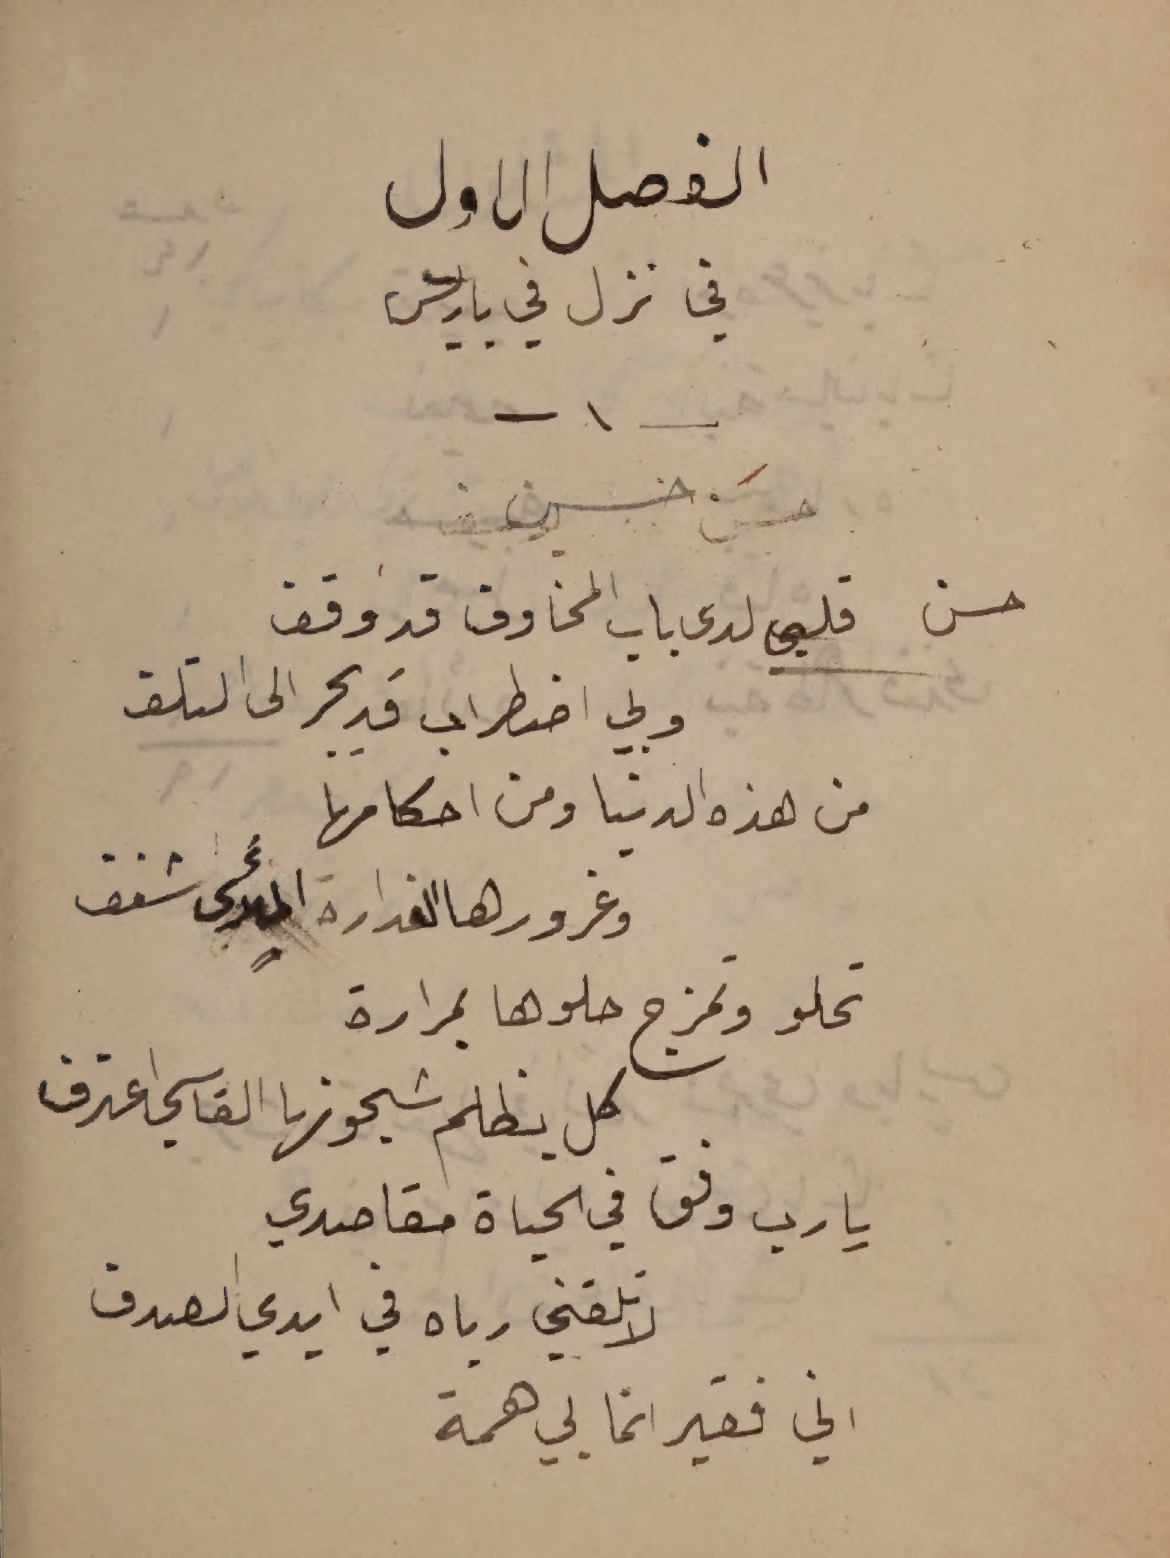 الفصل الاول
في نزل في باريس
— ١ —
حسن
حسن قلبي لدى باب المخاوف قد وقف
ولي اضطراب قد يجر الى التلف
من هذه الدنيا ومن احكامها
وغرورها الغدارة شغف
تحلو وتمزج حلوها بمرارة
كل بظلم شجونها القاسي اعترف
يا رب وفق في الحياة مقاصدي
لا تلقني رباه في ايدي الصدف
اني فقير انما لي همة